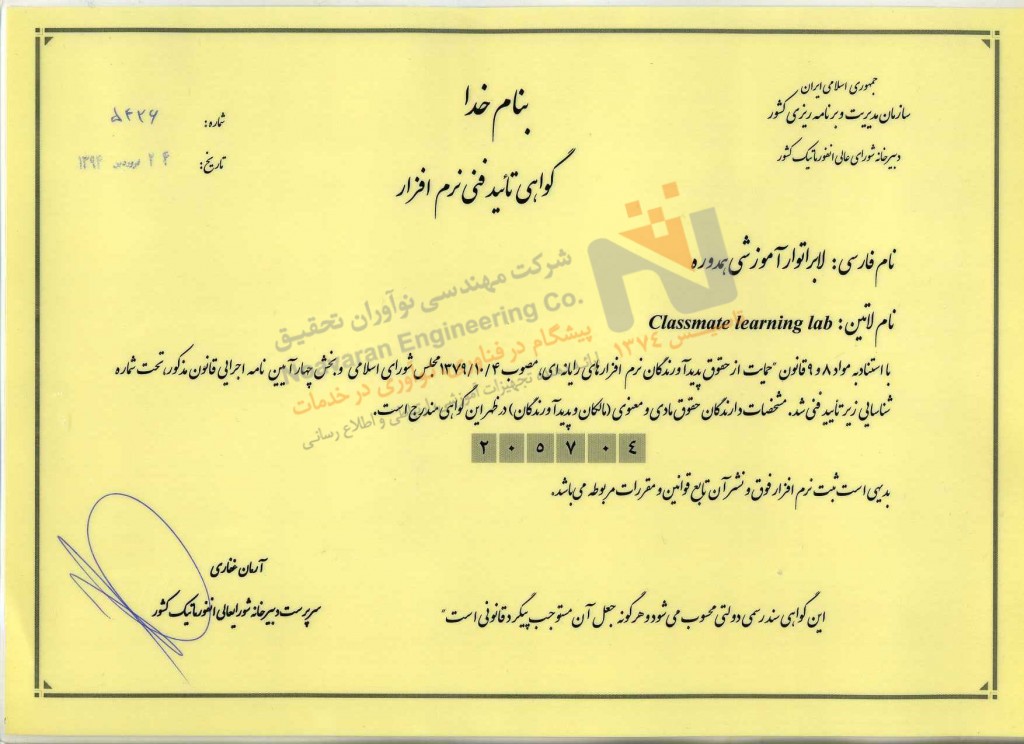 بنام خدا
جمهوری اسلامی ایران
سازمان مدیریت و برنامه ریزی کشور
دبیرخانه شورای عالی انفورماتیک کشور
شماره: ۵۴۲۶
تاریخ: ۲۴ فروردین ۱۳۹۴
گواهی تائید فنی نرم افزار
نام فارسی: لابراتوار آموزشی همدوره
نام لاتین: Classmate learning lab
با استناد به مواد ۸ و ۹ قانون "حمایت از حقوق پدیدآورندگان نرم افزارهای رایانه ای، مصوب ۱۳۷۹/۱۰/۴ مجلس شورای اسلامی و بخش چهار آیین نامه اجرایی قانون مذکور، تحت شماره
شناسایی زیر تأیید فنی شد. مشخصات دارندگان حقوق مادی و معنوی (مالکان و پدیدآورندگان) در ظهر این گواهی مندرج است.
۲ ۰ ۵ ۷ ۰ ۴
بدیهی است ثبت نرم افزار فوق و نشر آن تابع قوانین و مقررات مربوطه می باشد.
آرمان غفاری
سرپرست دبیرخانه شورایعالی انفورماتیک کشور
این گواهی سند رسمی دولتی محسوب می شود و هرگونه جعل آن مستوجب پیگرد قانونی است"
شرکت مهندسی نوآوران تحقیق
Noavaran Engineering Co.
تاسیس ۱۳۷٤
پیشگام در فناوری نوآوری در خدمات
تجهیزات آموزشی و اطلاع رسانی